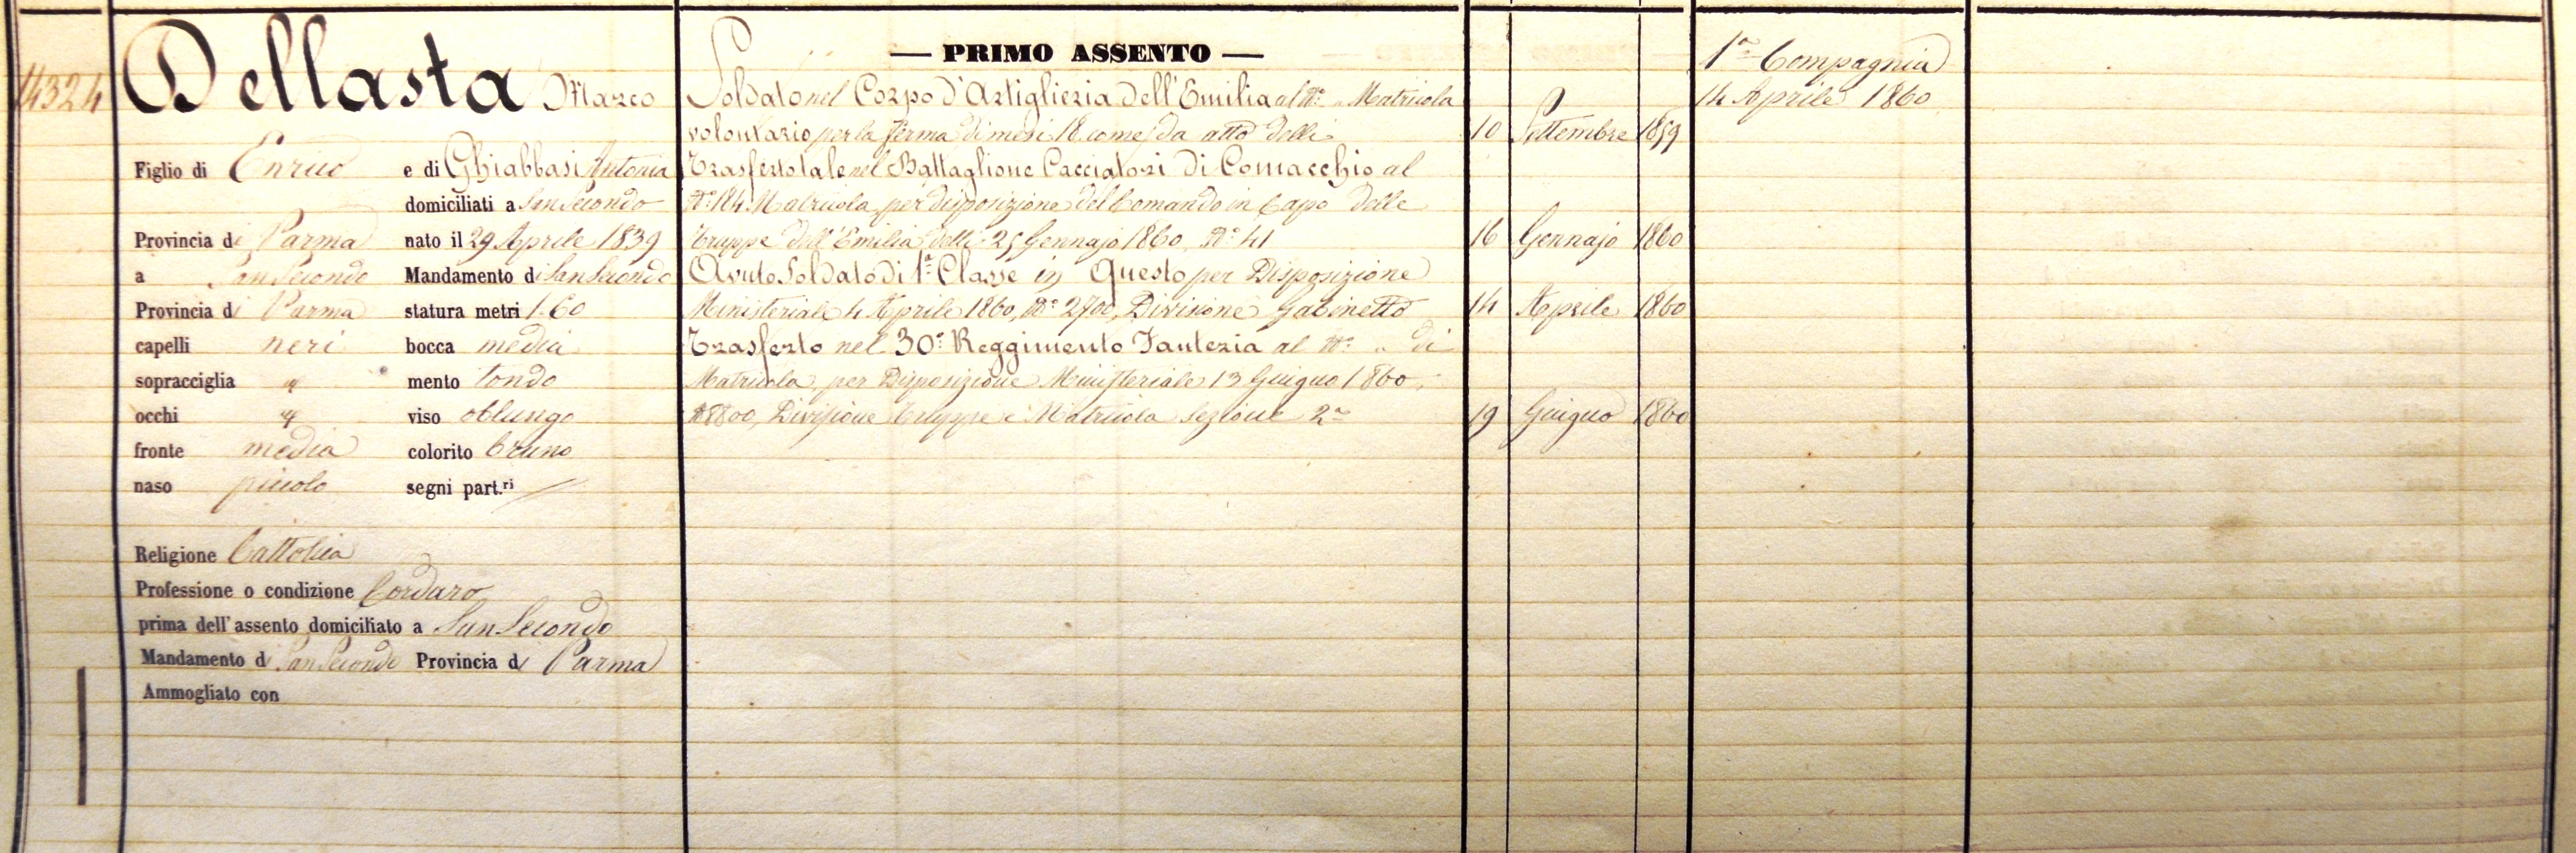 14324
Dellasta Marco
Figlio di Enrico e di Ghiabbasi Antonia
domiciliati a San Secondo
Provincia di Parma nato il 29 Aprile 1839
a San Secondo Mandamento di San Secondo
Provincia di Parma statura metri 1.60
capelli neri bocca media
sopracciglia id mento tondo
occhi id viso oblungo
fronte media colorito bruno
naso piccolo segni part.ri
Religione Cattolica
Professione o condizione Cordaro
prima dell'assento domiciliato a San Secondo
Mandamento di San Secondo Provincia di Parma
Ammogliato con
— PRIMO ASSENTO —
Soldato nel Corpo d'Artiglieria dell'Emilia al N° „ Matricola
volontario per la ferma di mesi 18 come da atto delli 10 Settembre 1859
Trasferto tale nel Battaglione Cacciatori di Comacchio al
N° 184 Matricola per disposizione del Comando in Capo delle
Truppe dell'Emilia delli 25 Gennajo 1860, N° 41 16 Gennajo 1860
Avuto Soldato di 1a Classe in Questo per Disposizione
Ministeriale 4 Aprile 1860, N° 2700, Divisione Gabinetto 14 Aprile 1860
Trasferto nel 30° Reggimento Fanteria al N° „ di
Matricola, per Disposizione Ministeriale 13 Giugno 1860,
N 8800, Divisione Truppe e Matricola Sezione 2a 19 Giugno 1860
1a Compagnia
14 Aprile 1860